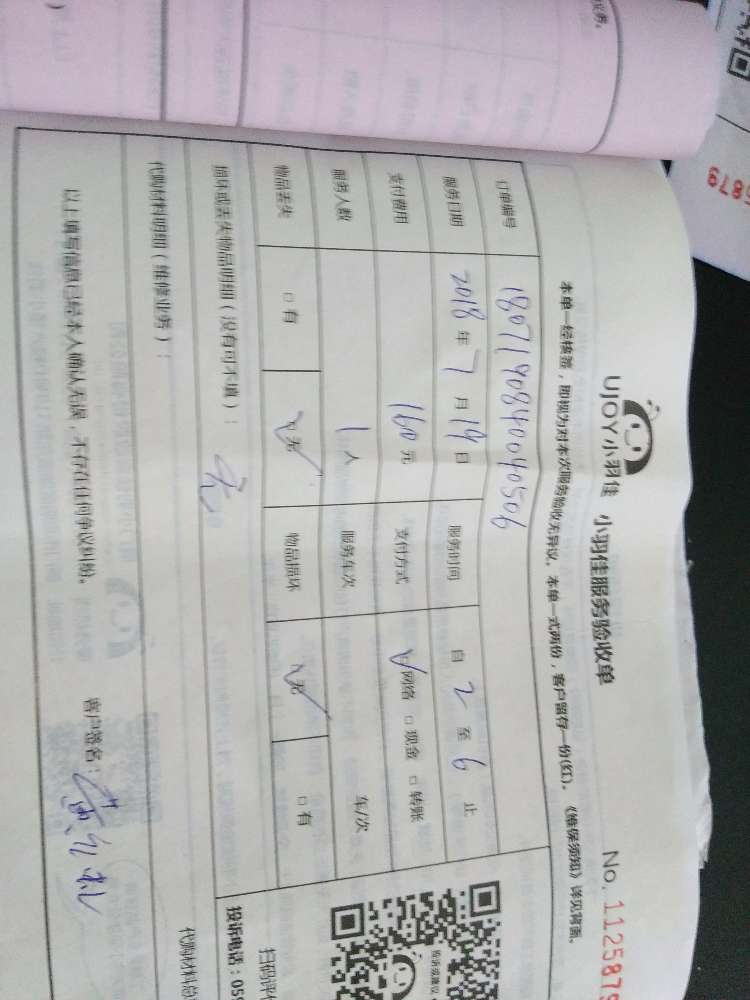 UJOY小羽佳 小羽佳服务验收单
No. 1125879
本单一经核签，即视为对本次服务验收无异议。本单一式两份，客户留存一份(红)。《维保须知》详见背面。
订单编号 1807190840040506
服务日期 2018 年 7 月 19 日 服务时间 自 2 至 6 止
支付费用 160 元 支付方式 ☑网络 □现金 □转账
服务人数 1 人 服务车次 车/次
物品丢失 □有 ☑无 物品损坏 ☑无 □有
损坏或丢失物品明细（没有可不填）： 无
代购材料明细（维修业务）： 代购材料总
以上填写信息已经本人确认无误，不存在任何争议纠纷。 客户签名：
投诉或建议
扫码评
投诉电话：059
5879